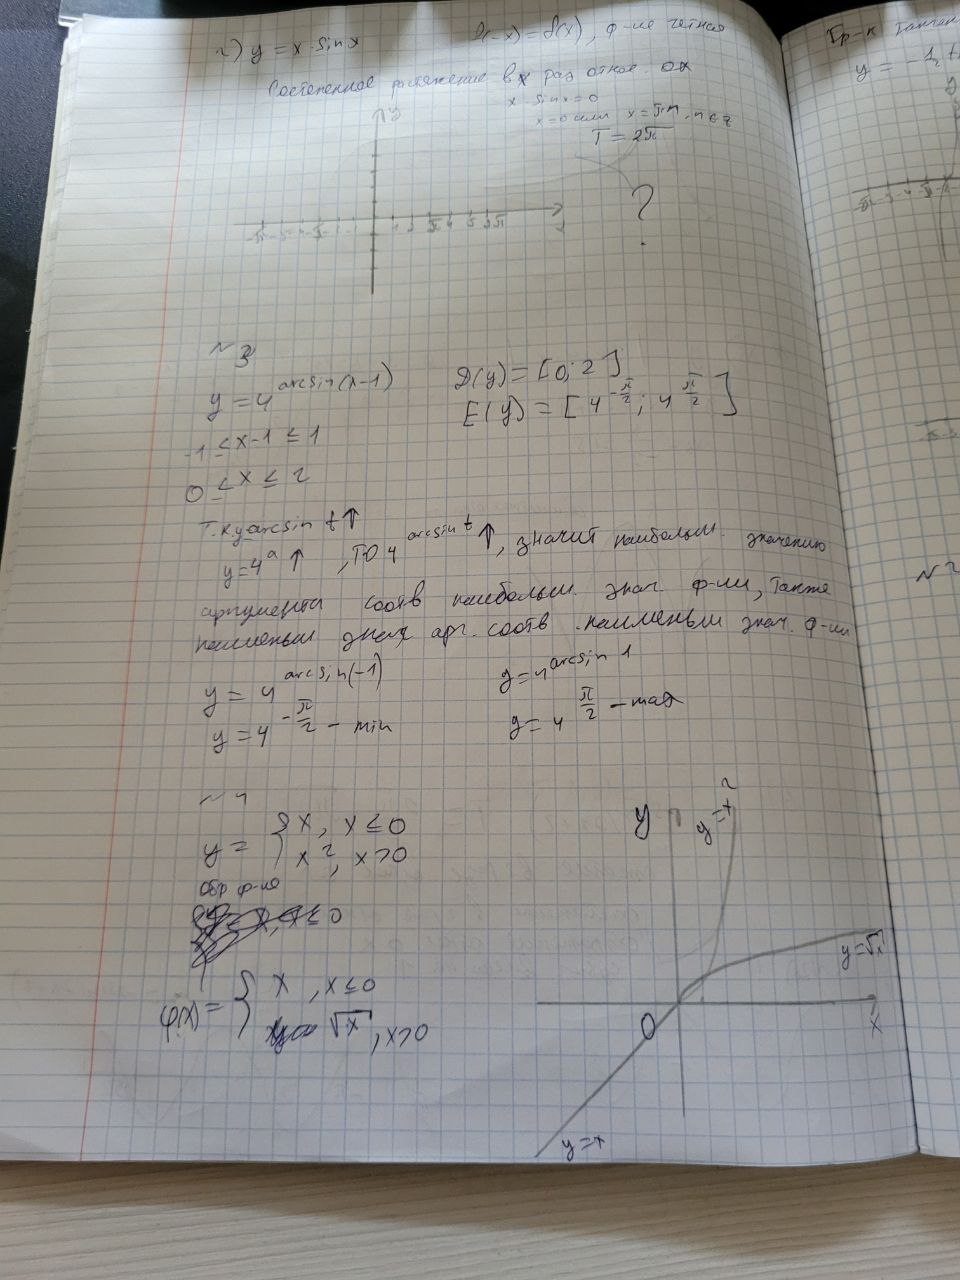 г) y = x·sin x   f(-x) = f(x), ф-ие четная
Постепенное растяжение в x раз относ. OX
x·sin x = 0
x = 0 или x = πn, n ∈ z
T = 2π
y
?
№3
y = 4^{arcsin(x-1)}   D(y) = [0; 2]
E(y) = [4^{-π/2}; 4^{π/2}]
-1 ≤ x-1 ≤ 1
0 ≤ x ≤ 2
Т.к y arcsin t ↑
y = 4^a ↑, то 4^{arcsin t} ↑, значит наибольш. значению
аргумента соотв наибольш. знач. ф-ии, также
наименьш знач арг. соотв. наименьш знач. ф-ии
y = 4^{arcsin(-1)}   y = 4^{arcsin 1}
y = 4^{-π/2} - min   y = 4^{π/2} - max
№4
y = { x, x ≤ 0
x², x > 0
обр ф-ие
x ≤ 0
φ(x) = { x, x ≤ 0
√x, x > 0
y
y = x²
y = √x
x
0
y = x
Гр-к
y = -